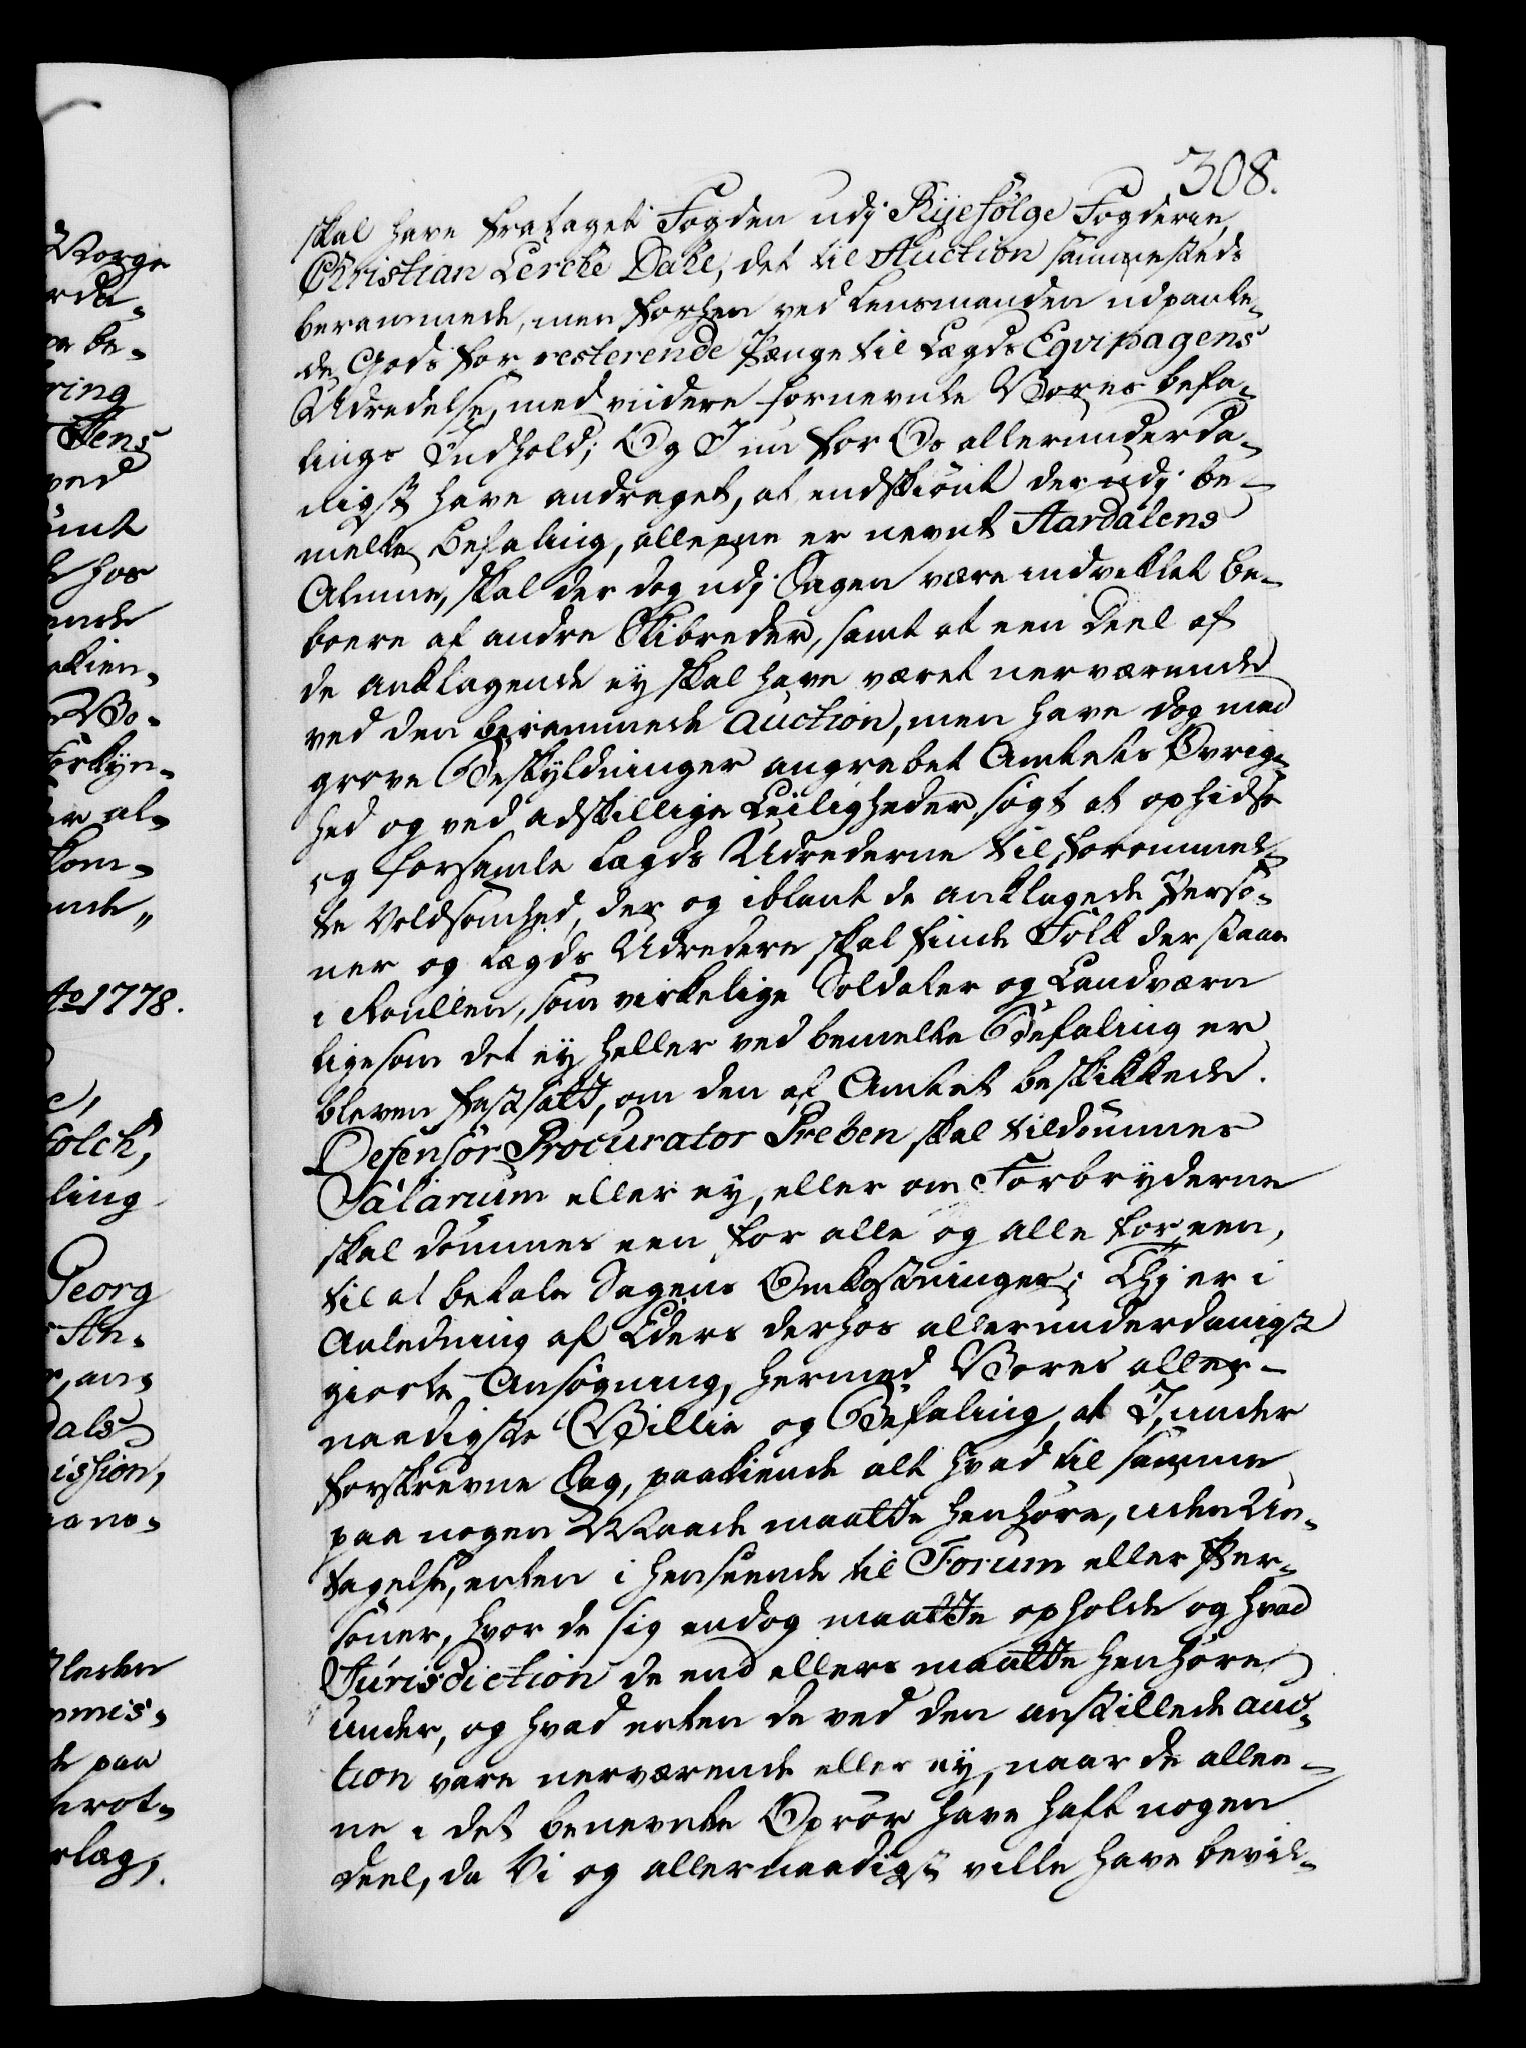 308.
skal have frataget Fogden udj Ryefölge Fogderie,
Christian Lerche Dahl, det til Auction sammesteds
berammede, men forhen ved Lensmanden udpante-
de Gods for resterende Penge til Lægds Eqvipagens
Udredelse, med videre fornevnte Vores Befa-
lings Indhold; Og I nu for Os allerunderda-
nigst have andraget, at endskiönt der udj be-
melte Befaling, alleene er nevnt Aardalens
Almue, skal der dog udj Sagen være indviklet Be-
boere af andre Skibreder, samt at een Deel af
de anklagende ey skal have været nerværende
ved den berammede Auction, men have dog med
grove Beskyldninger angrebet Amtets Övrig-
hed og ved adskillige Leiligheder, sögt at ophidse
og forsamle Lægds Udrederne til forommel-
te Voldsomhed, der og iblant de anklagede Perso-
ner og Lægds Udredere skal finde Folk der staar
i Roullen, som virkelige Soldater og Landværn
ligesom det ey heller ved bemelte Befaling er
bleven fastsatt, om den af Amtet beskikkede
Defensor Procurator Preben skal tildömmes
Salarium eller ey, eller om Forbryderne
skal dömmes een for alle og alle for een,
til at betale Sagens Omkostninger; Thj er i
Anledning af Eders derhos allerunderdanigst
giorte Ansögning, hermed Vores aller-
naadigste Villie og Befaling, at I, under
forskrevne Sag, paakiende alt hvad til samme
paa nogen Maade maatte henhöre, uden Un-
tagelse, enten i Henseende til Forum eller Per-
soner, hvor de sig endog maatte opholde og hvad
Jurisdiction de end ellers maatte henhöre
under, og hvad enten de ved den anstillede Auc-
tion vare nerværende eller ey, naar de allee-
ne i det benevnte Oprör have haft nogen
Deel, da Vi og allernaadigst ville have bevil-
Norge
ring
Jens
ved
hos
Ao 1778.
folch,
ling
Georg
An-
dals
ission,
mmis-
paa